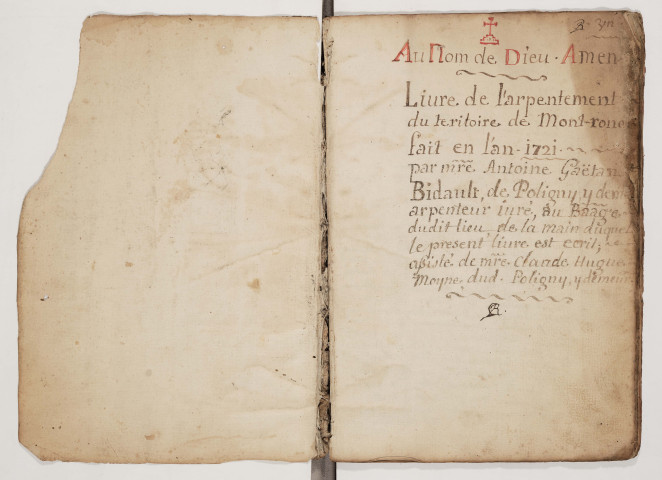 Au Nom de Dieu · Amen
Liure de l'arpentement
du teritoire de Mont-rond
fait en l'an · 1721 ·
par mre Antoine Gaëtan
Bidault, de Poligny, y dem
arpenteur iuré, au Baage
dudit lieu, de la main duquel
le present liure est ecrit,
asisté de mre Claude Hugue
Moyne dud · Poligny, y demeur